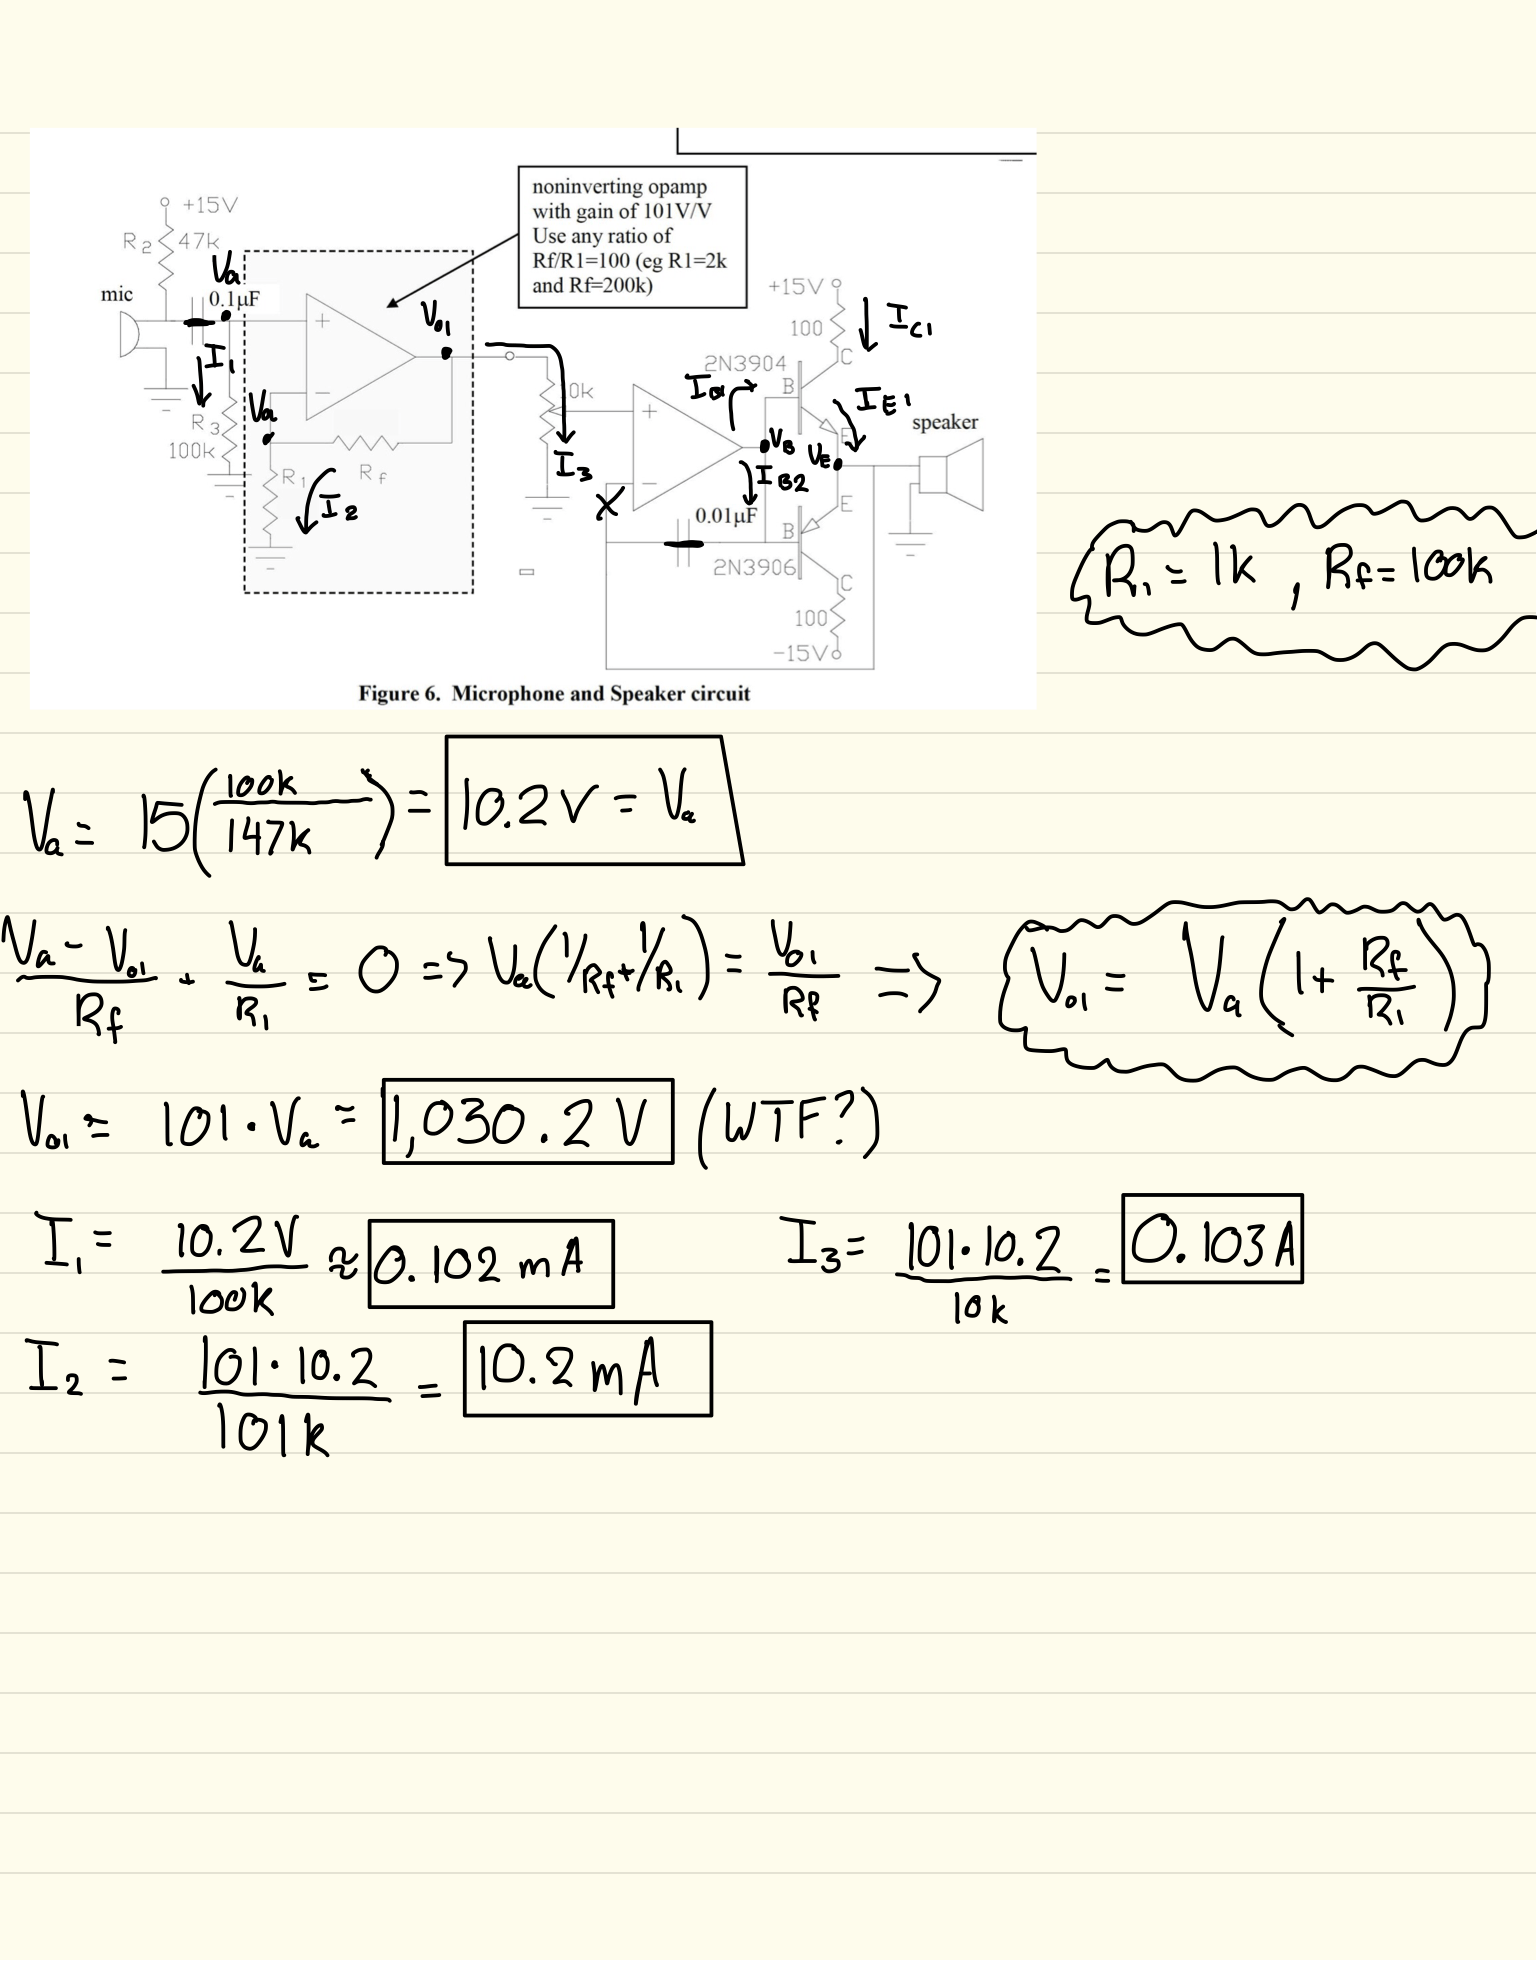 noninverting opamp
with gain of 101V/V
Use any ratio of
Rf/R1=100 (eg R1=2k
and Rf=200k)
+15V
R2 47k
Va
mic
0.1μF
+
Vo1
I1
Va
−
R3
100k
R1
Rf
I2
0k
I3
+
−
X
+15V
100
IC1
C
2N3904
B
IE1
E
VB
VE
IB2
speaker
0.01μF
E
B
2N3906
C
100
-15V
R1 = 1k , Rf = 100k
Figure 6. Microphone and Speaker circuit
Va = 15(100k/147k) = 10.2V = Va
(Va - Vo1)/Rf + Va/R1 = 0 => Va(1/Rf + 1/R1) = Vo1/Rf => Vo1 = Va(1 + Rf/R1)
Vo1 = 101 · Va = 1,030.2 V (WTF?)
I1 = 10.2V/100k ≈ 0.102 mA
I3 = 101·10.2/10k = 0.103A
I2 = 101·10.2/101k = 10.2 mA